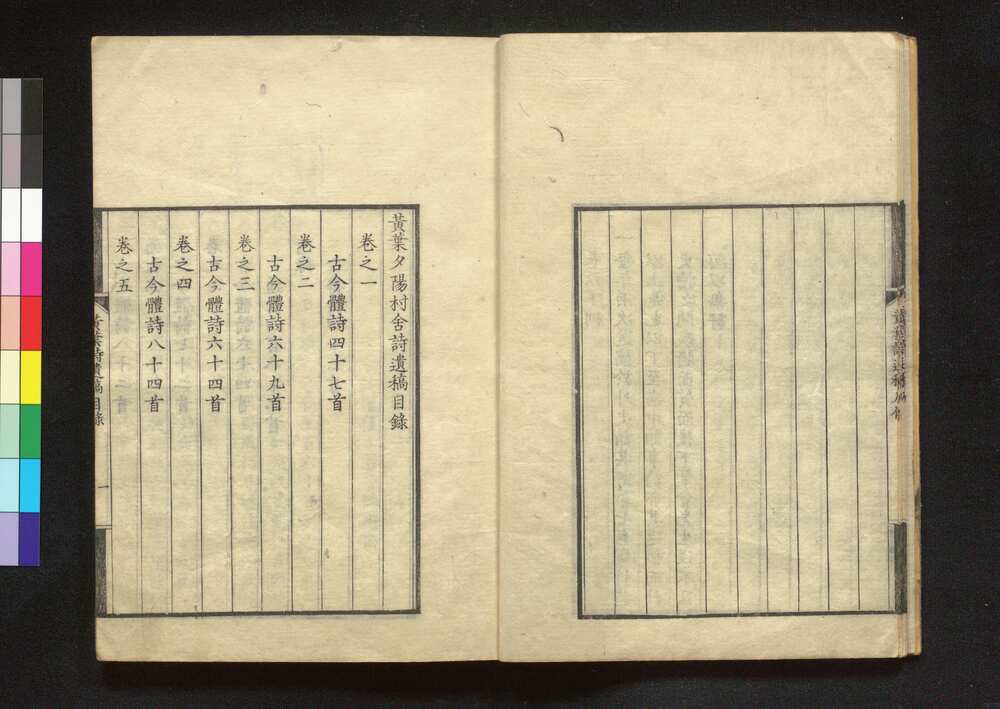 黃葉夕陽村舍詩遺稿目錄
卷之一
古今體詩四十七首
卷之二
古今體詩六十九首
卷之三
古今體詩六十四首
卷之四
古今體詩八十四首
卷之五
黃葉詩遺稿目錄
一